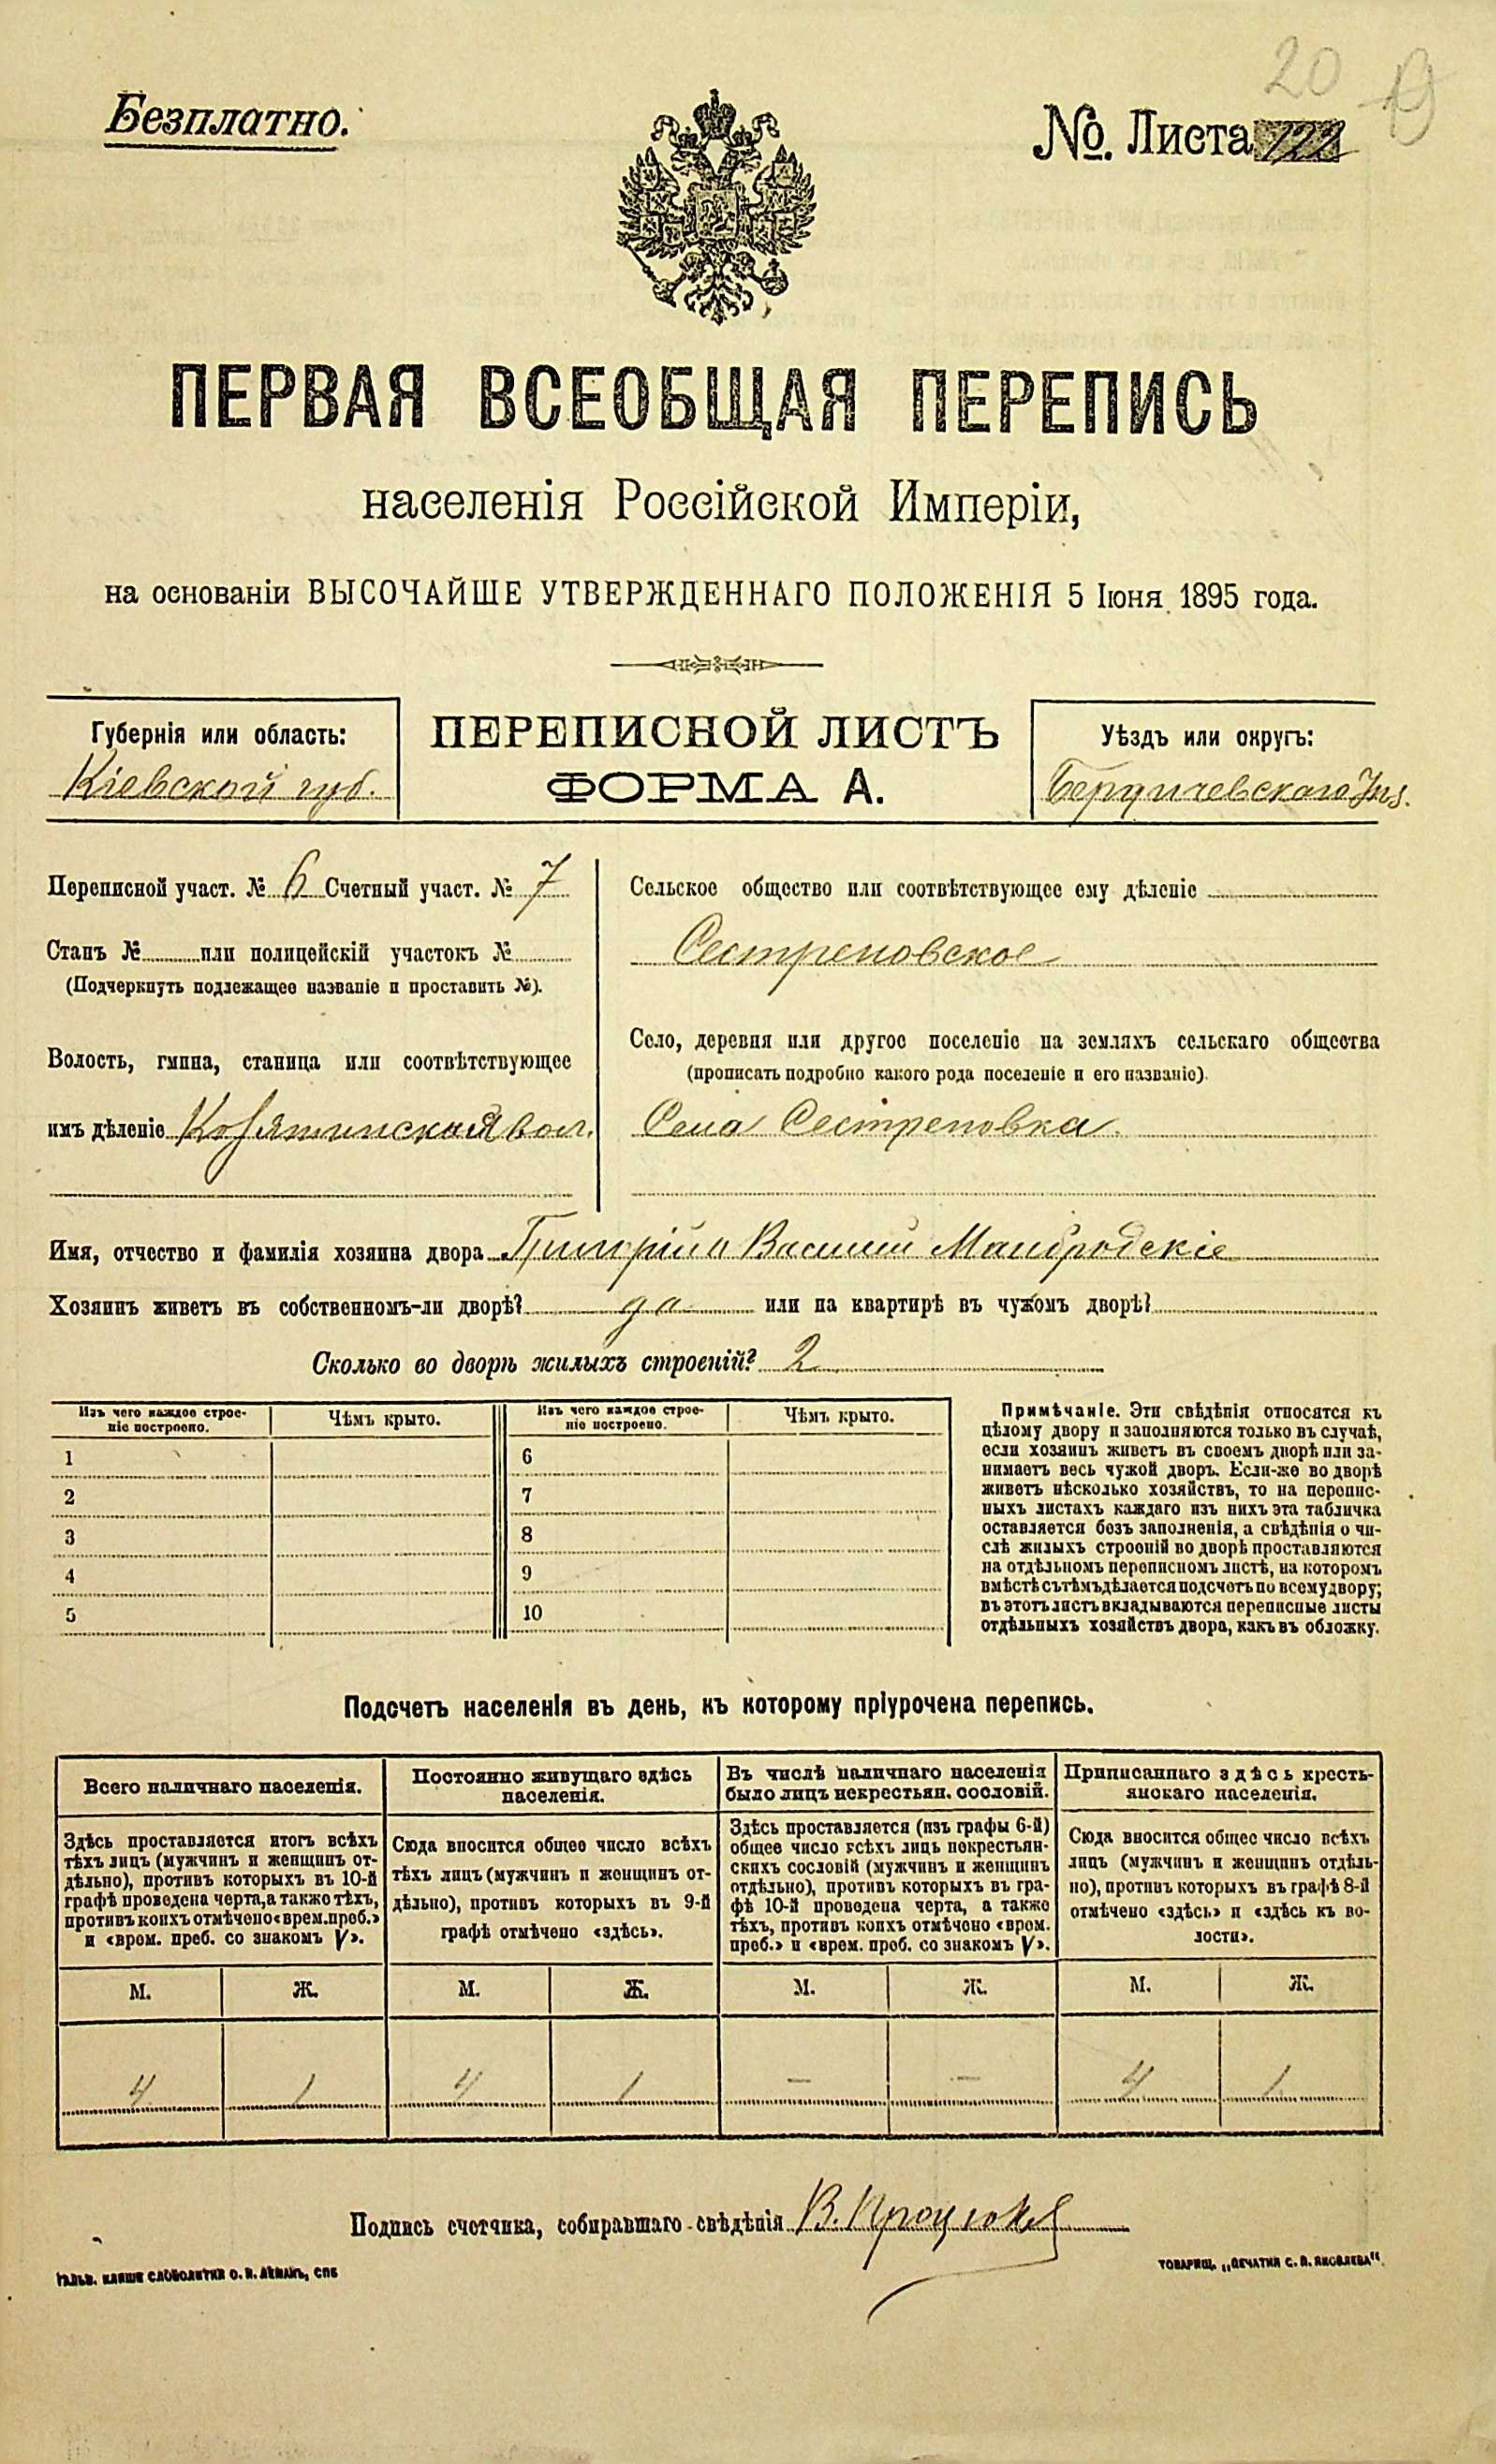 20 19
Безплатно.
№. Листа 122
ПЕРВАЯ ВСЕОБЩАЯ ПЕРЕПИСЬ
населенія Россійской Имперіи,
на основаніи ВЫСОЧАЙШЕ УТВЕРЖДЕННАГО ПОЛОЖЕНІЯ 5 Іюня 1895 года.
Губернія или область:
Кіевской губ.
ПЕРЕПИСНОЙ ЛИСТЪ
ФОРМА А.
Уѣздъ или округъ:
Бердичевскаго
Переписной участ. № 6 Счетный участ. № 7
Станъ № или полицейскій участокъ №
(Подчеркнуть подлежащее названіе и проставить №).
Волость, гмина, станица или соотвѣтствующее
имъ дѣленіе Козятинская вол.
Сельское общество или соотвѣтствующее ему дѣленіе
Сестреновское
Село, деревня или другое поселеніе на земляхъ сельскаго общества
(прописать подробно какого рода поселеніе и его названіе).
Село Сестреновка.
Имя, отчество и фамилія хозяина двора Григорій и Василий Мандродскіе
Хозяинъ живетъ въ собственномъ-ли дворѣ? да или на квартирѣ въ чужомъ дворѣ?
Сколько во дворѣ жилыхъ строеній? 2
Изъ чего каждое строе-
ніе построено.
Чѣмъ крыто.
Изъ чего каждое строе-
ніе построено.
Чѣмъ крыто.
1 6
2 7
3 8
4 9
5 10
Примѣчаніе. Эти свѣдѣнія относятся къ
цѣлому двору и заполняются только въ случаѣ,
если хозяинъ живетъ въ своемъ дворѣ или за-
нимаетъ весь чужой дворъ. Если-же во дворѣ
живетъ нѣсколько хозяйствъ, то на перепис-
ныхъ листахъ каждаго изъ нихъ эта табличка
оставляется безъ заполненія, а свѣдѣнія о чи-
слѣ жилыхъ строеній во дворѣ проставляются
на отдѣльномъ переписномъ листѣ, на которомъ
вмѣстѣ съ тѣмъ дѣлается подсчетъ по всему двору;
въ этотъ листъ вкладываются переписные листы
отдѣльныхъ хозяйствъ двора, какъ въ обложку.
Подсчетъ населенія въ день, къ которому пріурочена перепись.
Всего наличнаго населенія.
Здѣсь проставляется итогъ всѣхъ
тѣхъ лицъ (мужчинъ и женщинъ от-
дѣльно), противъ которыхъ въ 10-й
графѣ проведена черта, а также тѣхъ,
противъ коихъ отмѣчено «врем. преб.»
и «врем. преб. со знакомъ V».
Постоянно живущаго здѣсь
населенія.
Сюда вносится общее число всѣхъ
тѣхъ лицъ (мужчинъ и женщинъ от-
дѣльно), противъ которыхъ въ 9-й
графѣ отмѣчено «здѣсь».
Въ числѣ наличнаго населенія
было лицъ некрестьян. сословій.
Здѣсь проставляется (изъ графы 6-й)
общее число всѣхъ лицъ некрестьян-
скихъ сословій (мужчинъ и женщинъ
отдѣльно), противъ которыхъ въ гра-
фѣ 10-й проведена черта, а также
тѣхъ, противъ коихъ отмѣчено «врем.
преб.» и «врем. преб. со знакомъ V».
Приписаннаго здѣсь кресть-
янскаго населенія.
Сюда вносится общее число всѣхъ
лицъ (мужчинъ и женщинъ отдѣль-
но), противъ которыхъ въ графѣ 8-й
отмѣчено «здѣсь» и «здѣсь къ во-
лости».
М. Ж. М. Ж. М. Ж. М. Ж.
4 1 4 1 — — 4 1
Подпись счетчика, собиравшаго свѣдѣнія В. Процюк
ГАЛЬВ. КЛИШЕ СЛОВОЛИТНИ О. И. ЛЕМАНЪ, СПБ
ТОВАРИЩ. „ПЕЧАТНЯ С. П. ЯКОВЛЕВА“